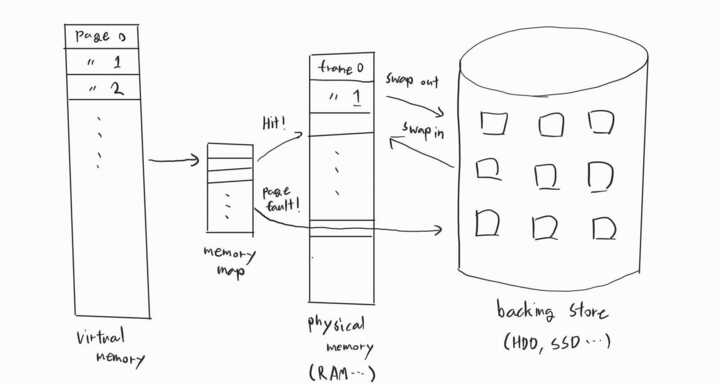 Page 0
〃 1
〃 2
virtual
memory
memory
map
Hit!
page
fault!
frame 0
〃 1
physical
memory
(RAM...)
swap out
swap in
backing store
(HDD, SSD ...)